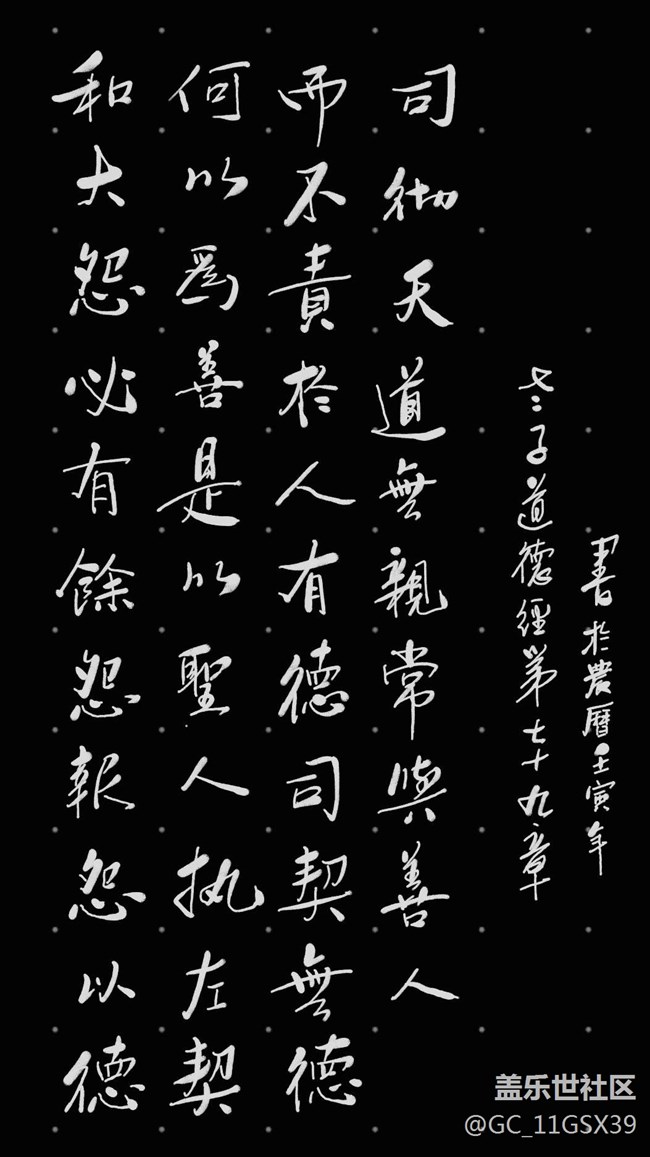 和大怨必有餘怨報怨以德
何以為善是以聖人执左契
而不責於人有德司契無德
司彻天道無親常與善人
老子道德經第七十九章
書於農曆壬寅年
盖乐世社区
@GC_11GSX39